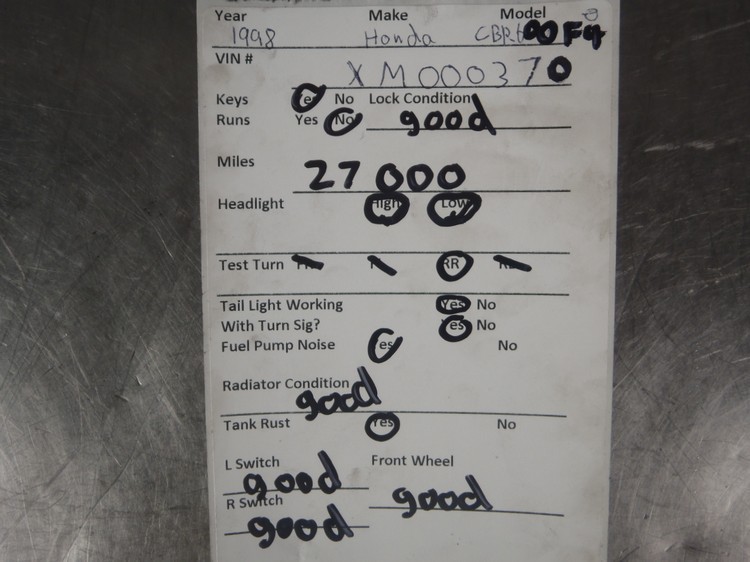 Year Make Model
1998 Honda CBR600F4
VIN #
XM000370
Keys Yes No Lock Condition
Runs Yes No good
Miles
27 000
Headlight High Low
Test Turn RR
Tail Light Working Yes No
With Turn Sig? Yes No
Fuel Pump Noise Yes No
Radiator Condition
good
Tank Rust Yes No
L Switch Front Wheel
good
R Switch good
good